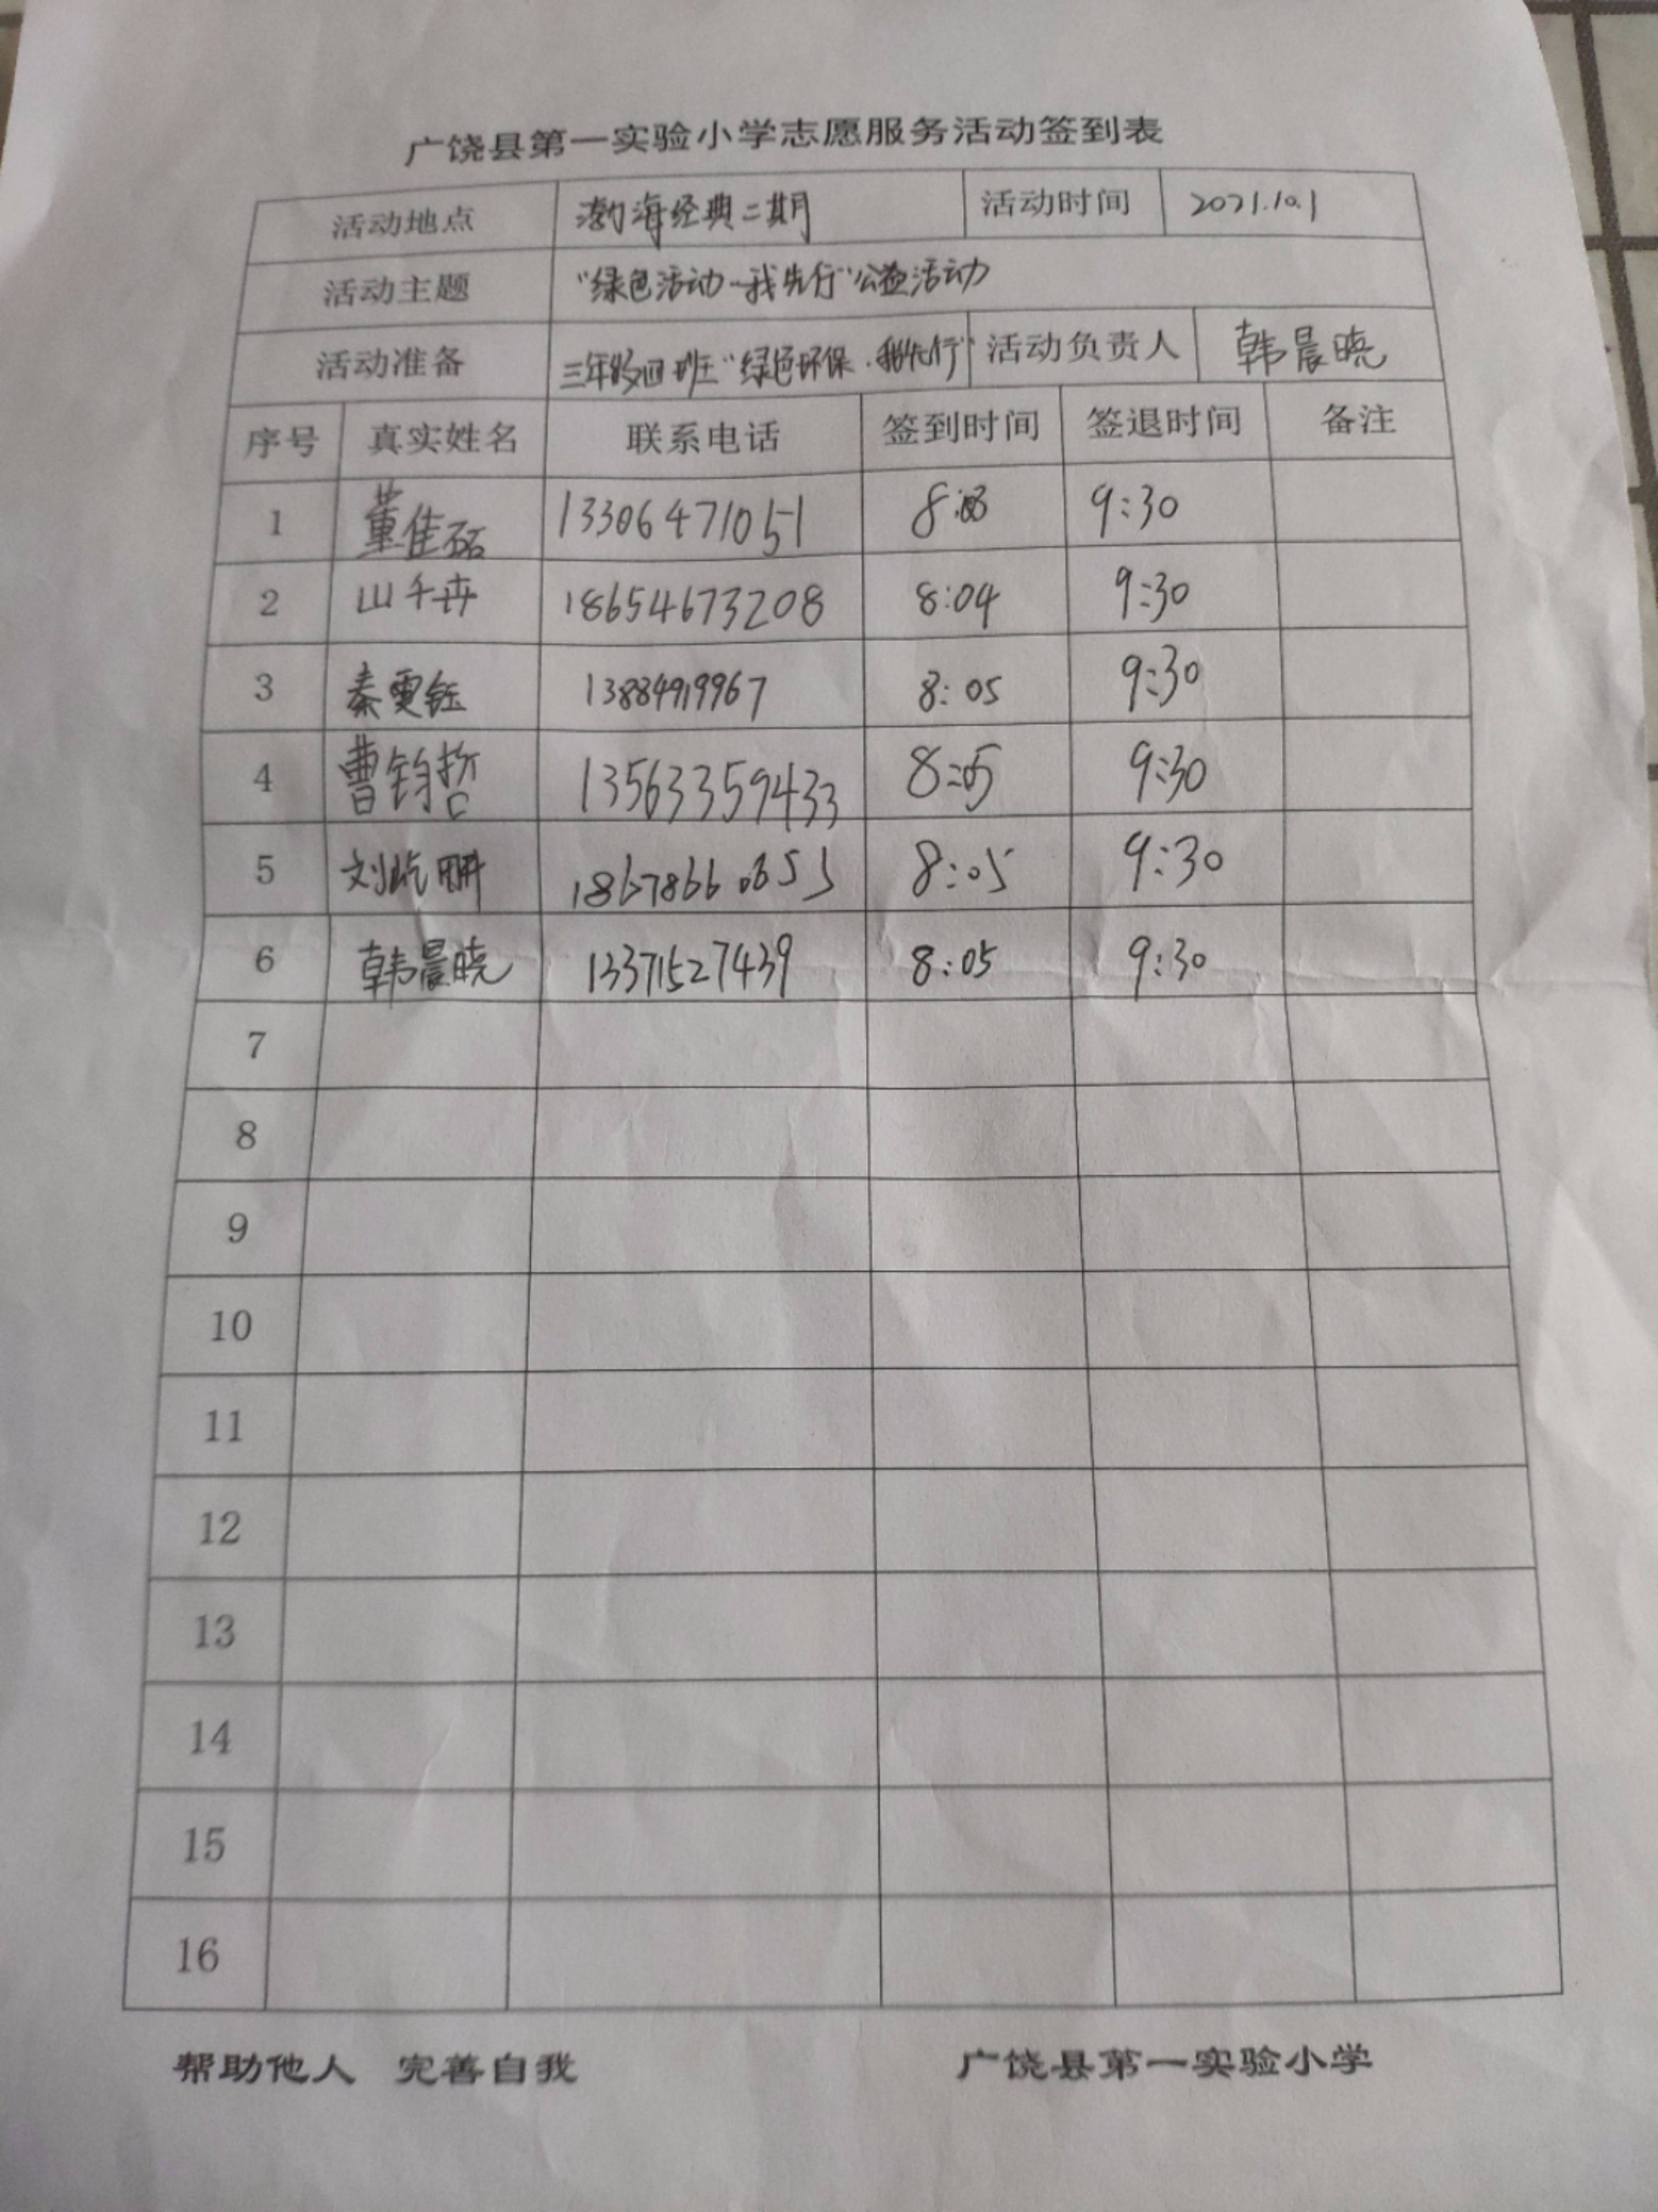 广饶县第一实验小学志愿服务活动签到表
活动地点 渤海经典二期 活动时间 2021.10.1
活动主题 "绿色活动-我先行"公益活动
活动准备 三年级四班"绿色环保.我先行" 活动负责人 韩晨晓
序号 真实姓名 联系电话 签到时间 签退时间 备注
1 董佳 13306471051 8:03 9:30
2 山千卉 18654673208 8:04 9:30
3 秦雯钰 13884919967 8:05 9:30
4 曹钧哲 13563359433 8:05 9:30
5 刘屹 8:05 9:30
6 韩晨晓 13371527439 8:05 9:30
7
8
9
10
11
12
13
14
15
16
帮助他人 完善自我 广饶县第一实验小学